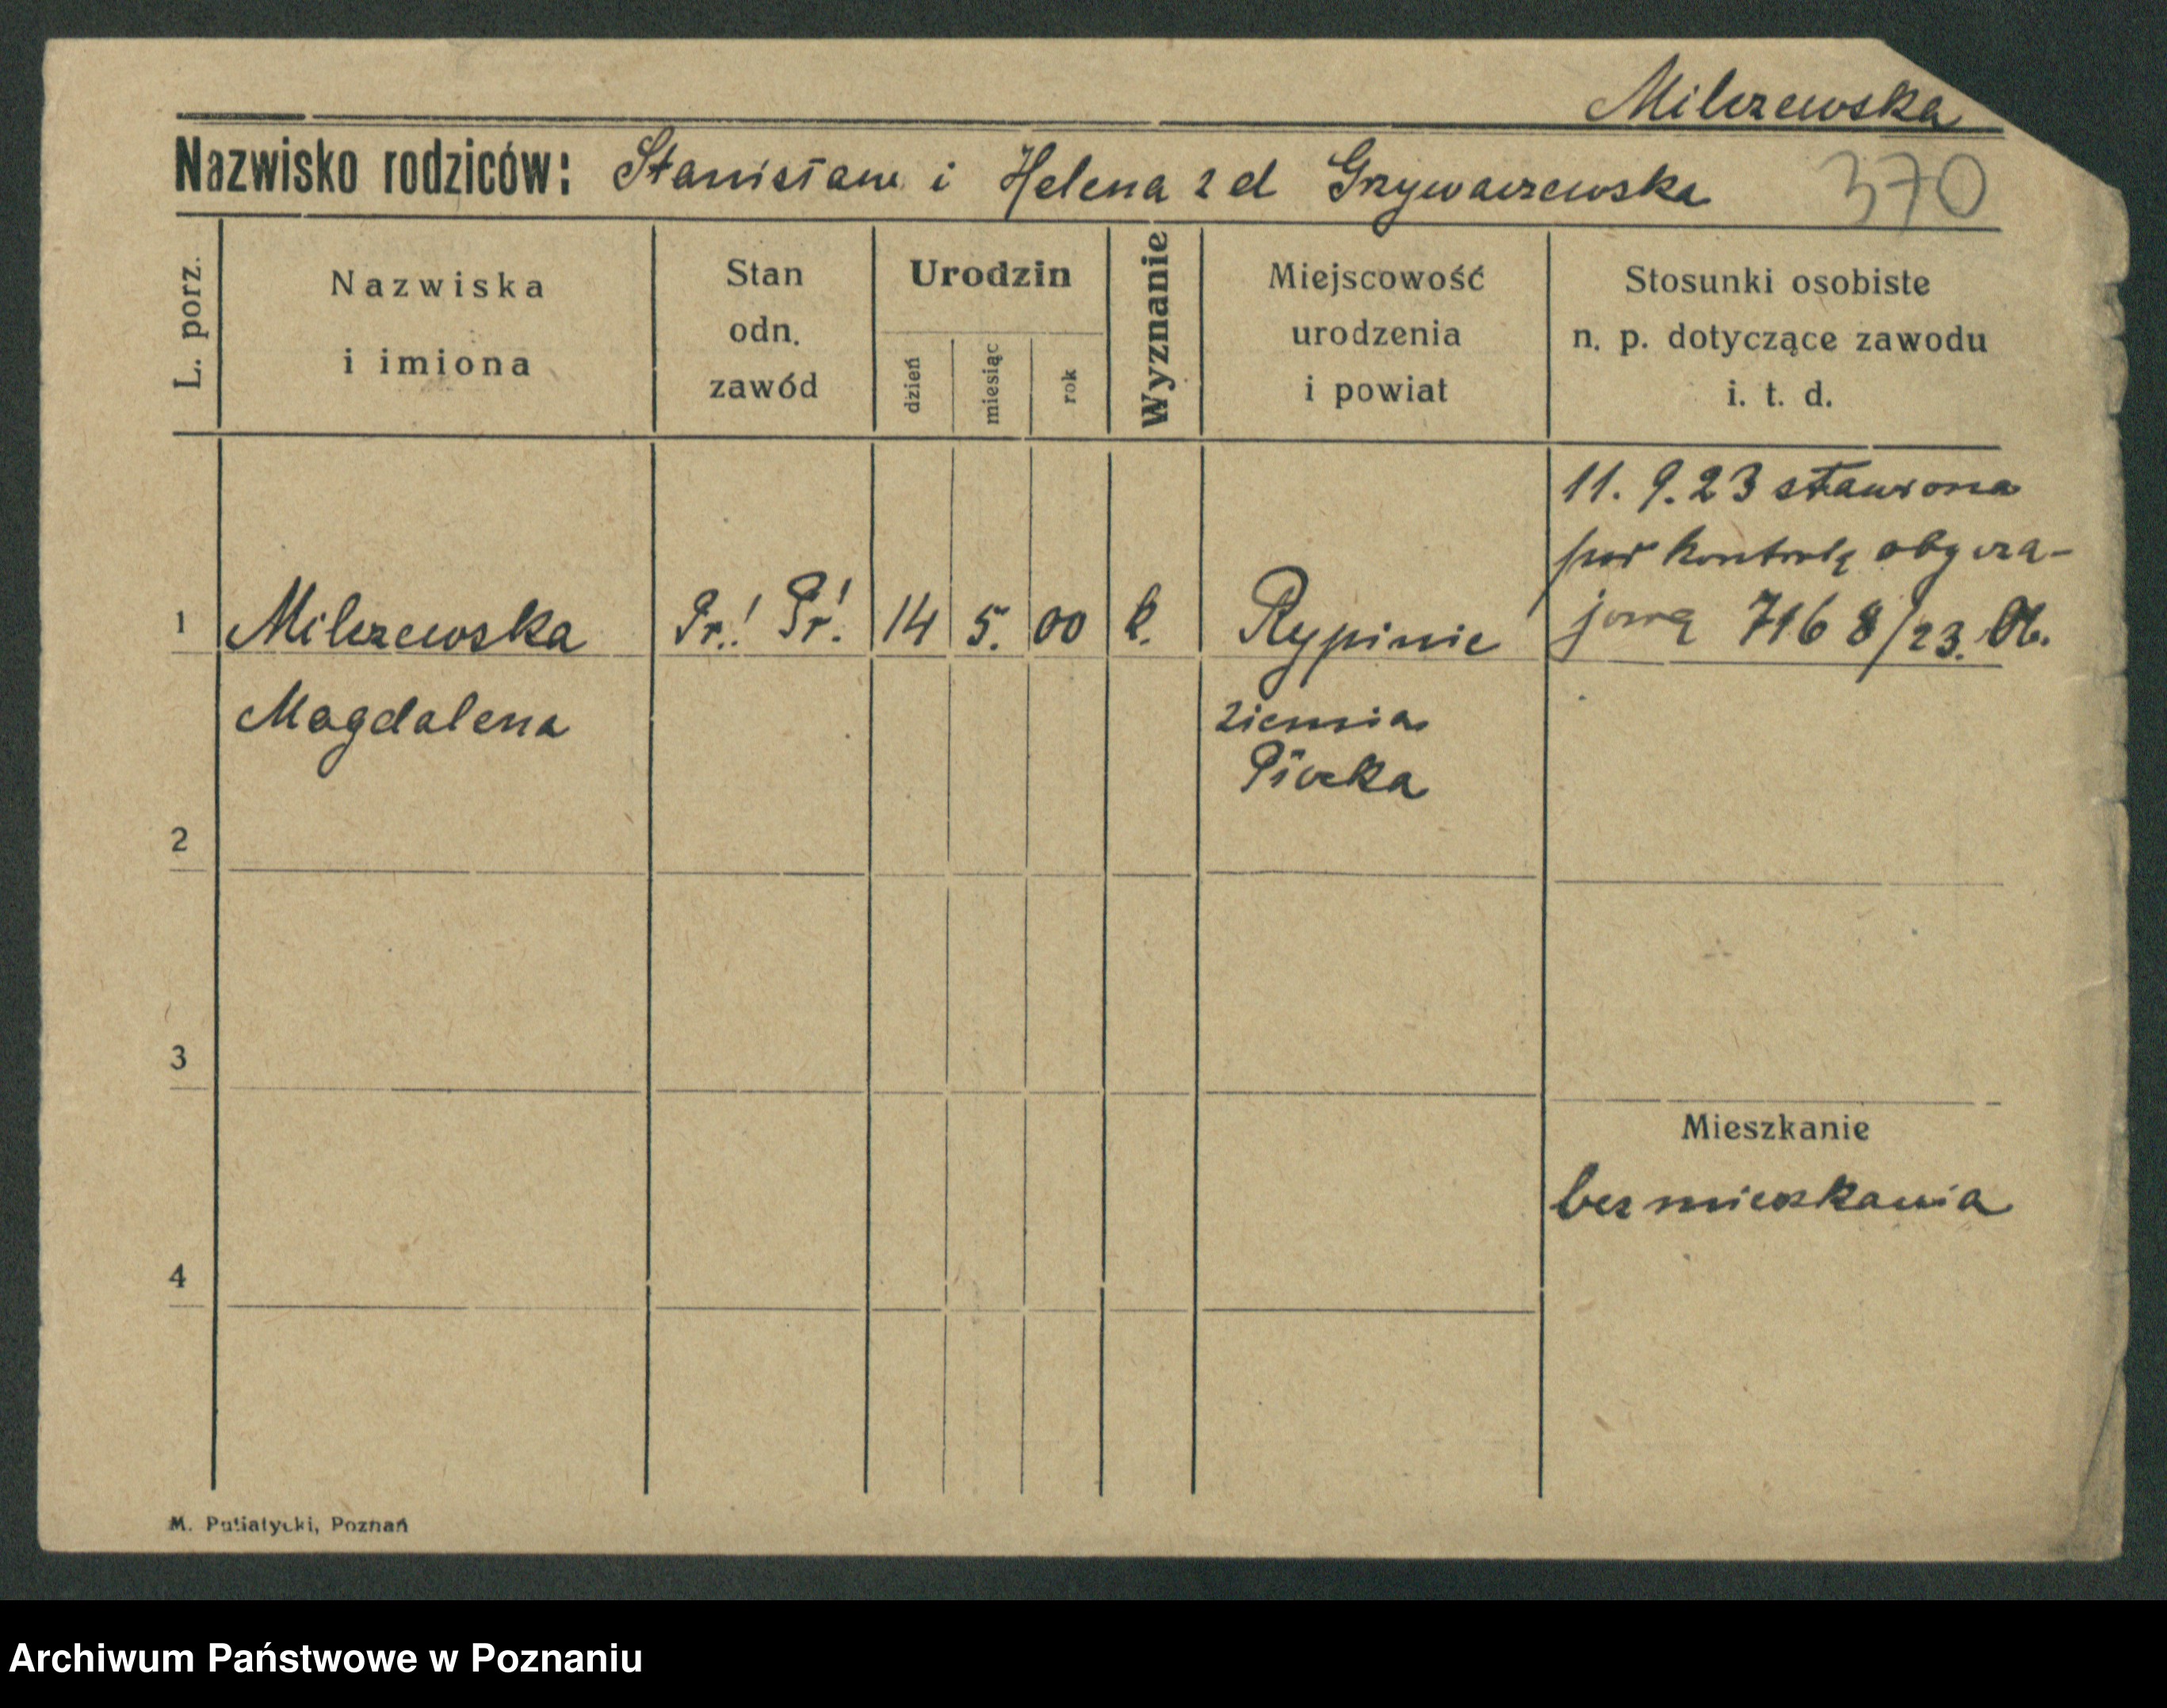 Milczewska
Nazwisko rodziców: Stanisław i Helena z d Grzywaczewska
370
L. porz.
Nazwiska
i imiona
Stan
odn.
zawód
Urodzin
dzień
miesiąc
rok
Wyznanie
Miejscowość
urodzenia
i powiat
Stosunki osobiste
n. p. dotyczące zawodu
i. t. d.
11. 9. 23 stawiona
pod kontrolę obycza-
jową 7168/23. Ob.
1 Milczewska Pr.! Pr! 14 5. 00 k. Rypinie
Magdalena ziemia
Płocka
2
3
Mieszkanie
bez mieszkania
4
M. Putiatycki, Poznań
Archiwum Państwowe w Poznaniu